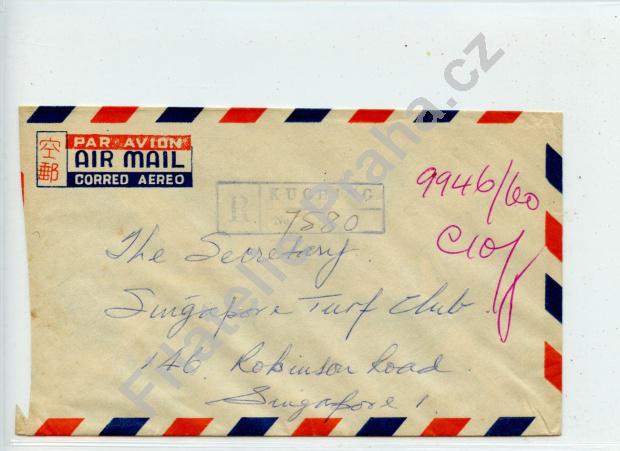 空郵
PAR AVION
AIR MAIL
CORREO AEREO
R
7580
9946/60
The Secretary.
Singapore Turf Club.
146 Robinson Road.
Singapore 1.
Filatelie-Praha.cz